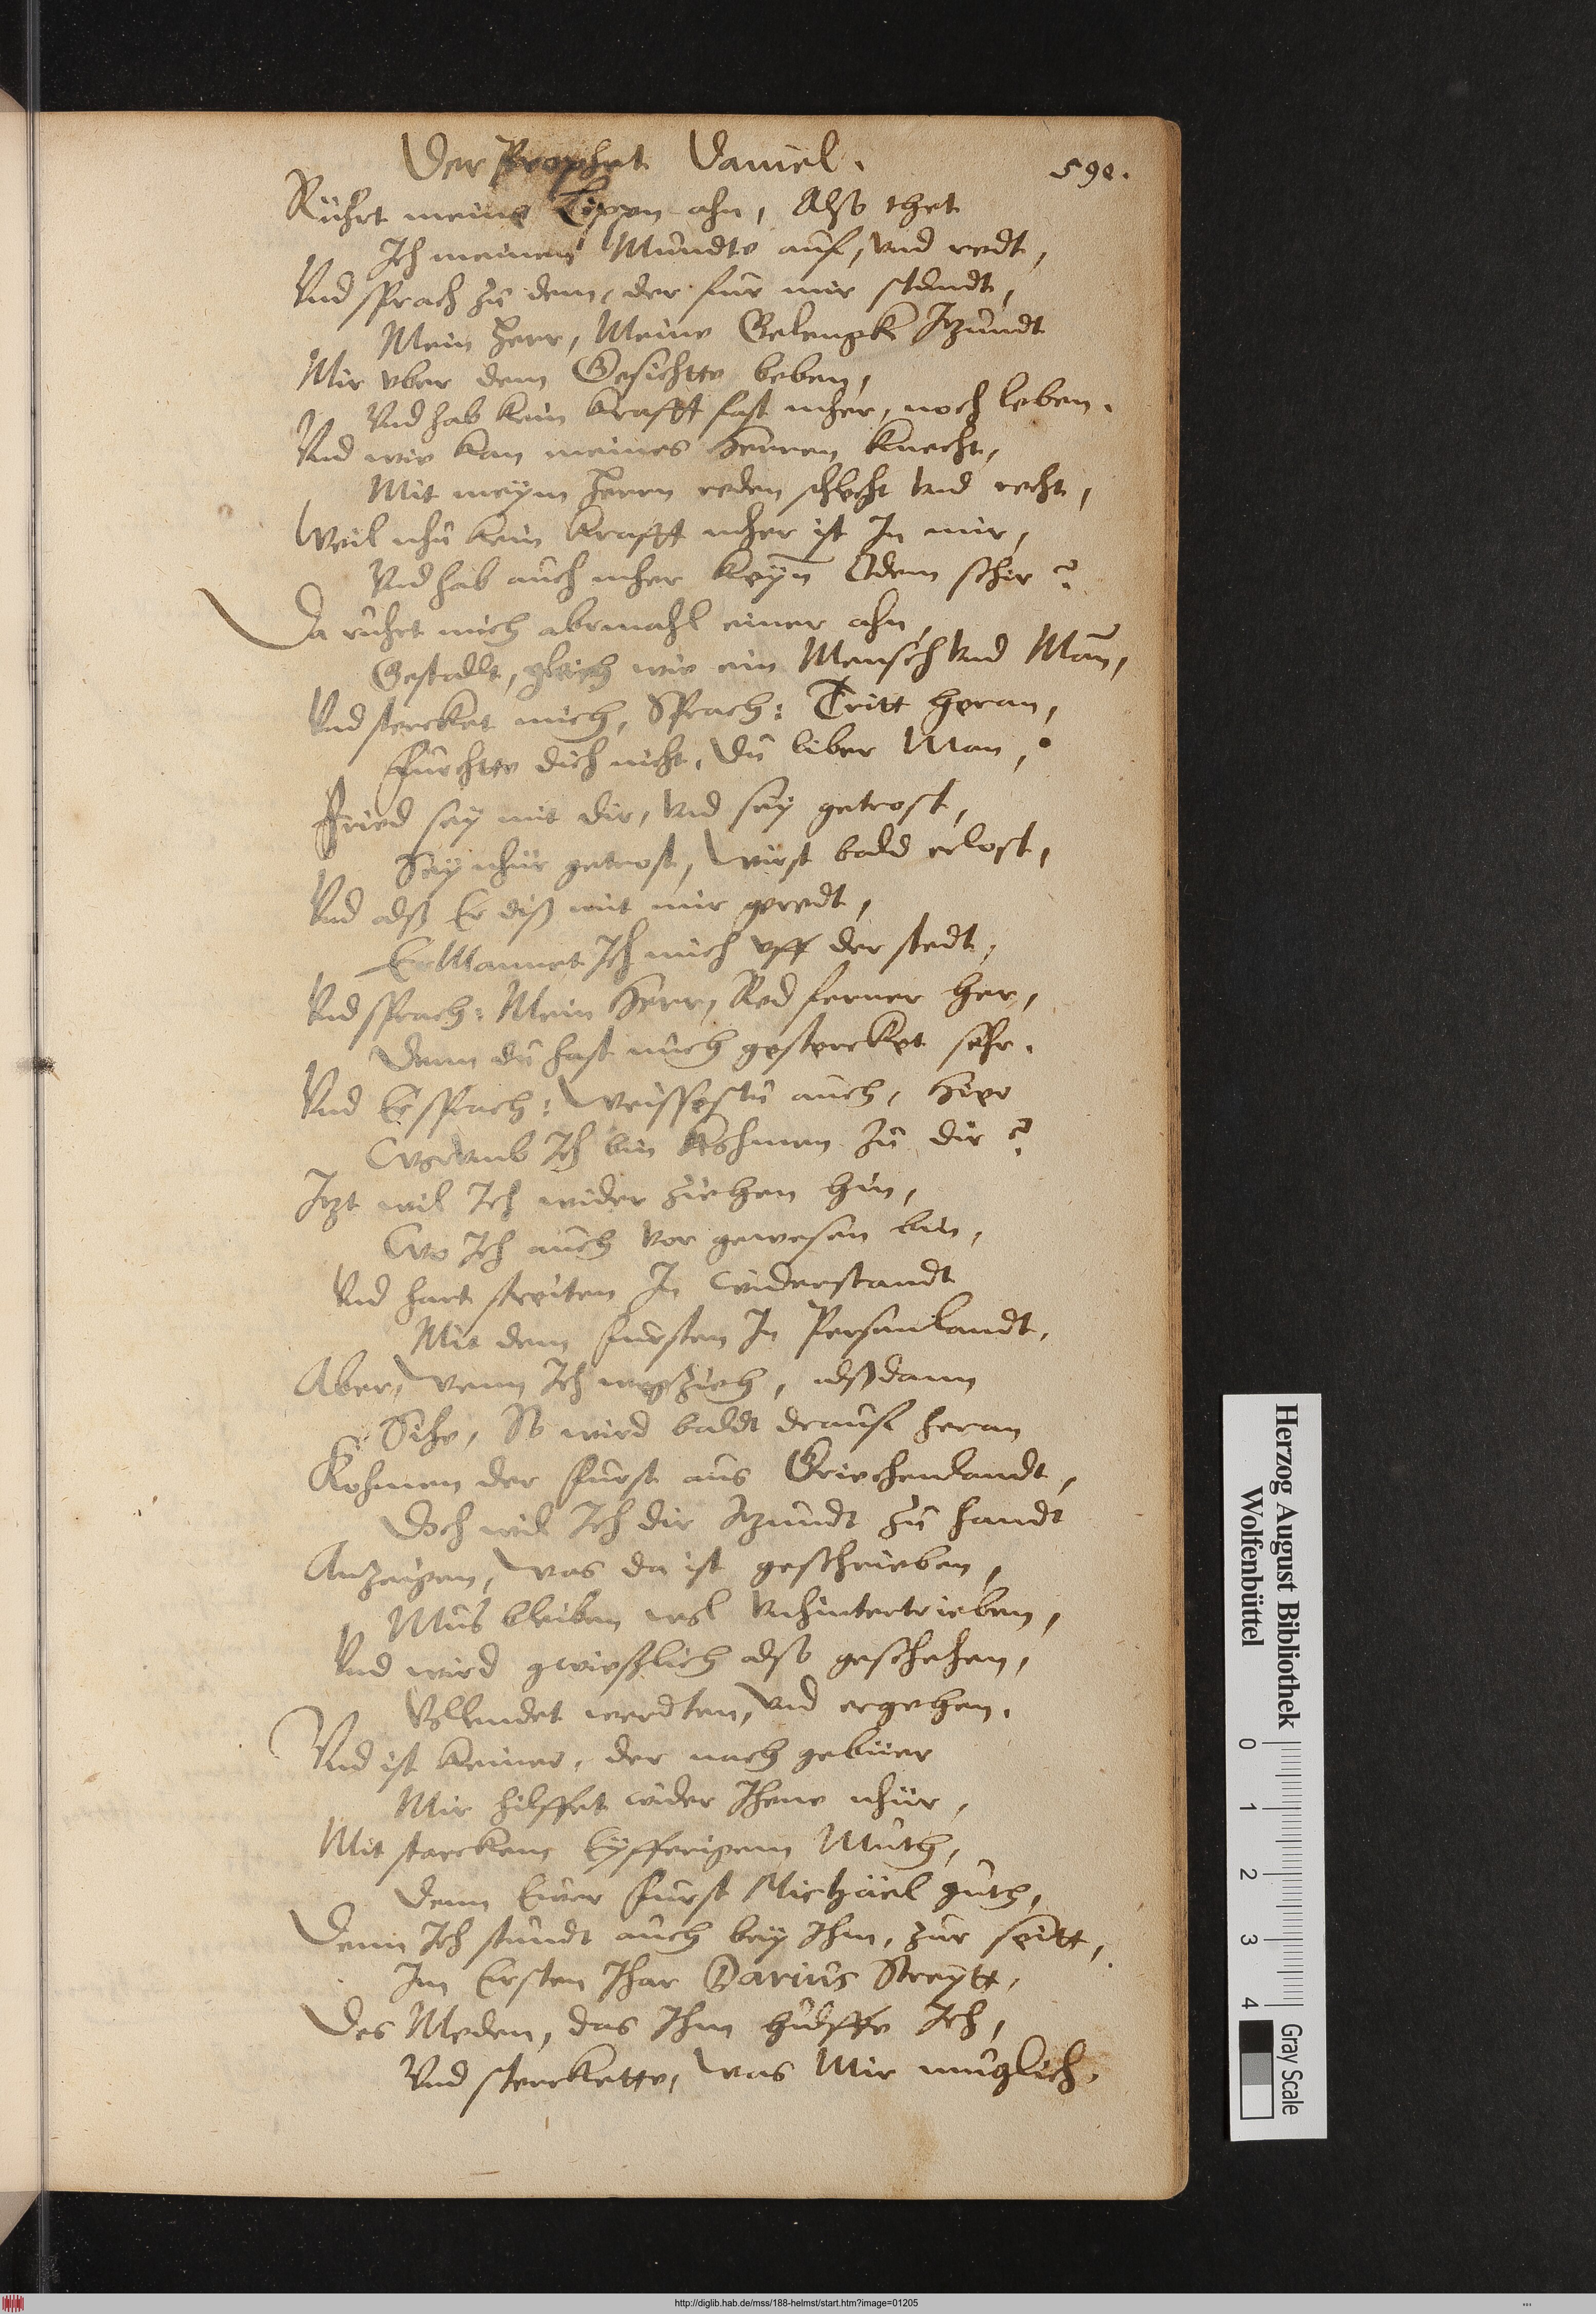 Der Prophet Daniel.
590.
Rührt meine Lippen ahn, Also thet
Ich meinen Mundte auf, vnd redt,
Vnd sprach zu dem, der fur mir stundt,
Mein Herr, Meine Gelengk Itzundt
Mir vber dem Gesichtte beben,
Vnd hab kein krafft fast mher, noch leben.
Vnd wie kan meines Herren knecht,
Mit meym Herrn reden schlecht vnd recht,
Weil nhu kein krafft mher ist In mir,
Vnd hab auch mher keyn Odem schir?
Da ruhrt mich abrmahl einer ahn,
Gestaldt, gleich wie ein Mensch vnd Man,
Vnd sterckat mich, Sprach: Tritt heran,
Furchtte dich nicht, du liber Man,
Fried sey mit dir, vnd sey getrost,
Sey nhur getrost, Wirst bald erlost,
Vnd alß Er diß mit mir geredt,
ErMannet Ich mich vff der stedt,
Vnd sprach: Mein Herr, Red ferner her,
Denn du hast mich gestercket sehr.
Vnd Er sprach: Weissestu auch, hier
Worumb Ich bin kohmen zu dir?
Itzt wil Ich wider ziehen hin,
Wo Ich auch vor gewesen bin,
Vnd hart streiten In widerstandt
Mit dem fursten In Persenlandt,
Aber, Wenn Ich wegzieh, alßdann
Sihe, So wird baldt drauf heran
Kohmen der furst aus Griechenlandt,
Doch wil Ich dir Itzundt zu handt
Anzeigen, Was da ist geschrieben,
Mus bleiben wol vnhintertrieben,
Vnd wird gwießlich also geschehen,
Vollendet werdten, vnd ergehen.
Vnd ist keiner, der nach gebüer
Mir hilffet wider Ihene nhür,
Mit starckem Eyfferigem Muth,
Denn Ewer furst Michäel guth,
Denn Ich stundt auch bey Ihm, zur seitt,
Im Ersten Ihar Darius Streytt,
Des Meden, das Ihm hulffe Ich,
Vnd sterckette, Was Mir muglich.
Herzog August Bibliothek
Wolfenbüttel
0 1 2 3 4
Gray Scale
http://diglib.hab.de/mss/188-helmst/start.htm?image=01205